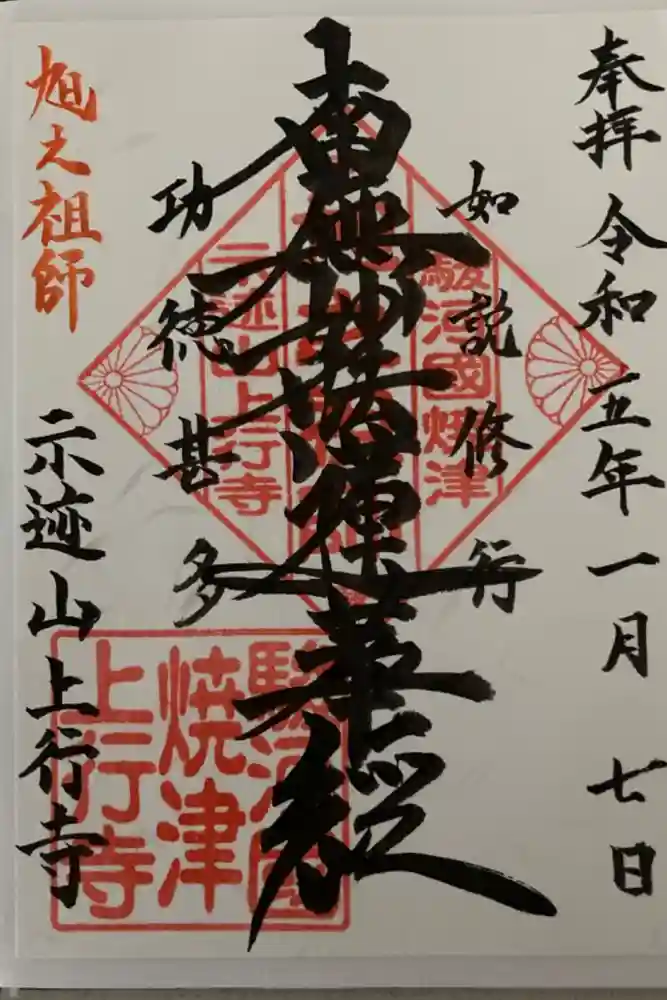 奉拝 令和五年一月七日
如説修行
南無妙法蓮華経
功徳甚多
旭之祖師
示迹山上行寺
駿河國焼津
示迹山上行寺
駿河國
焼津
上行寺